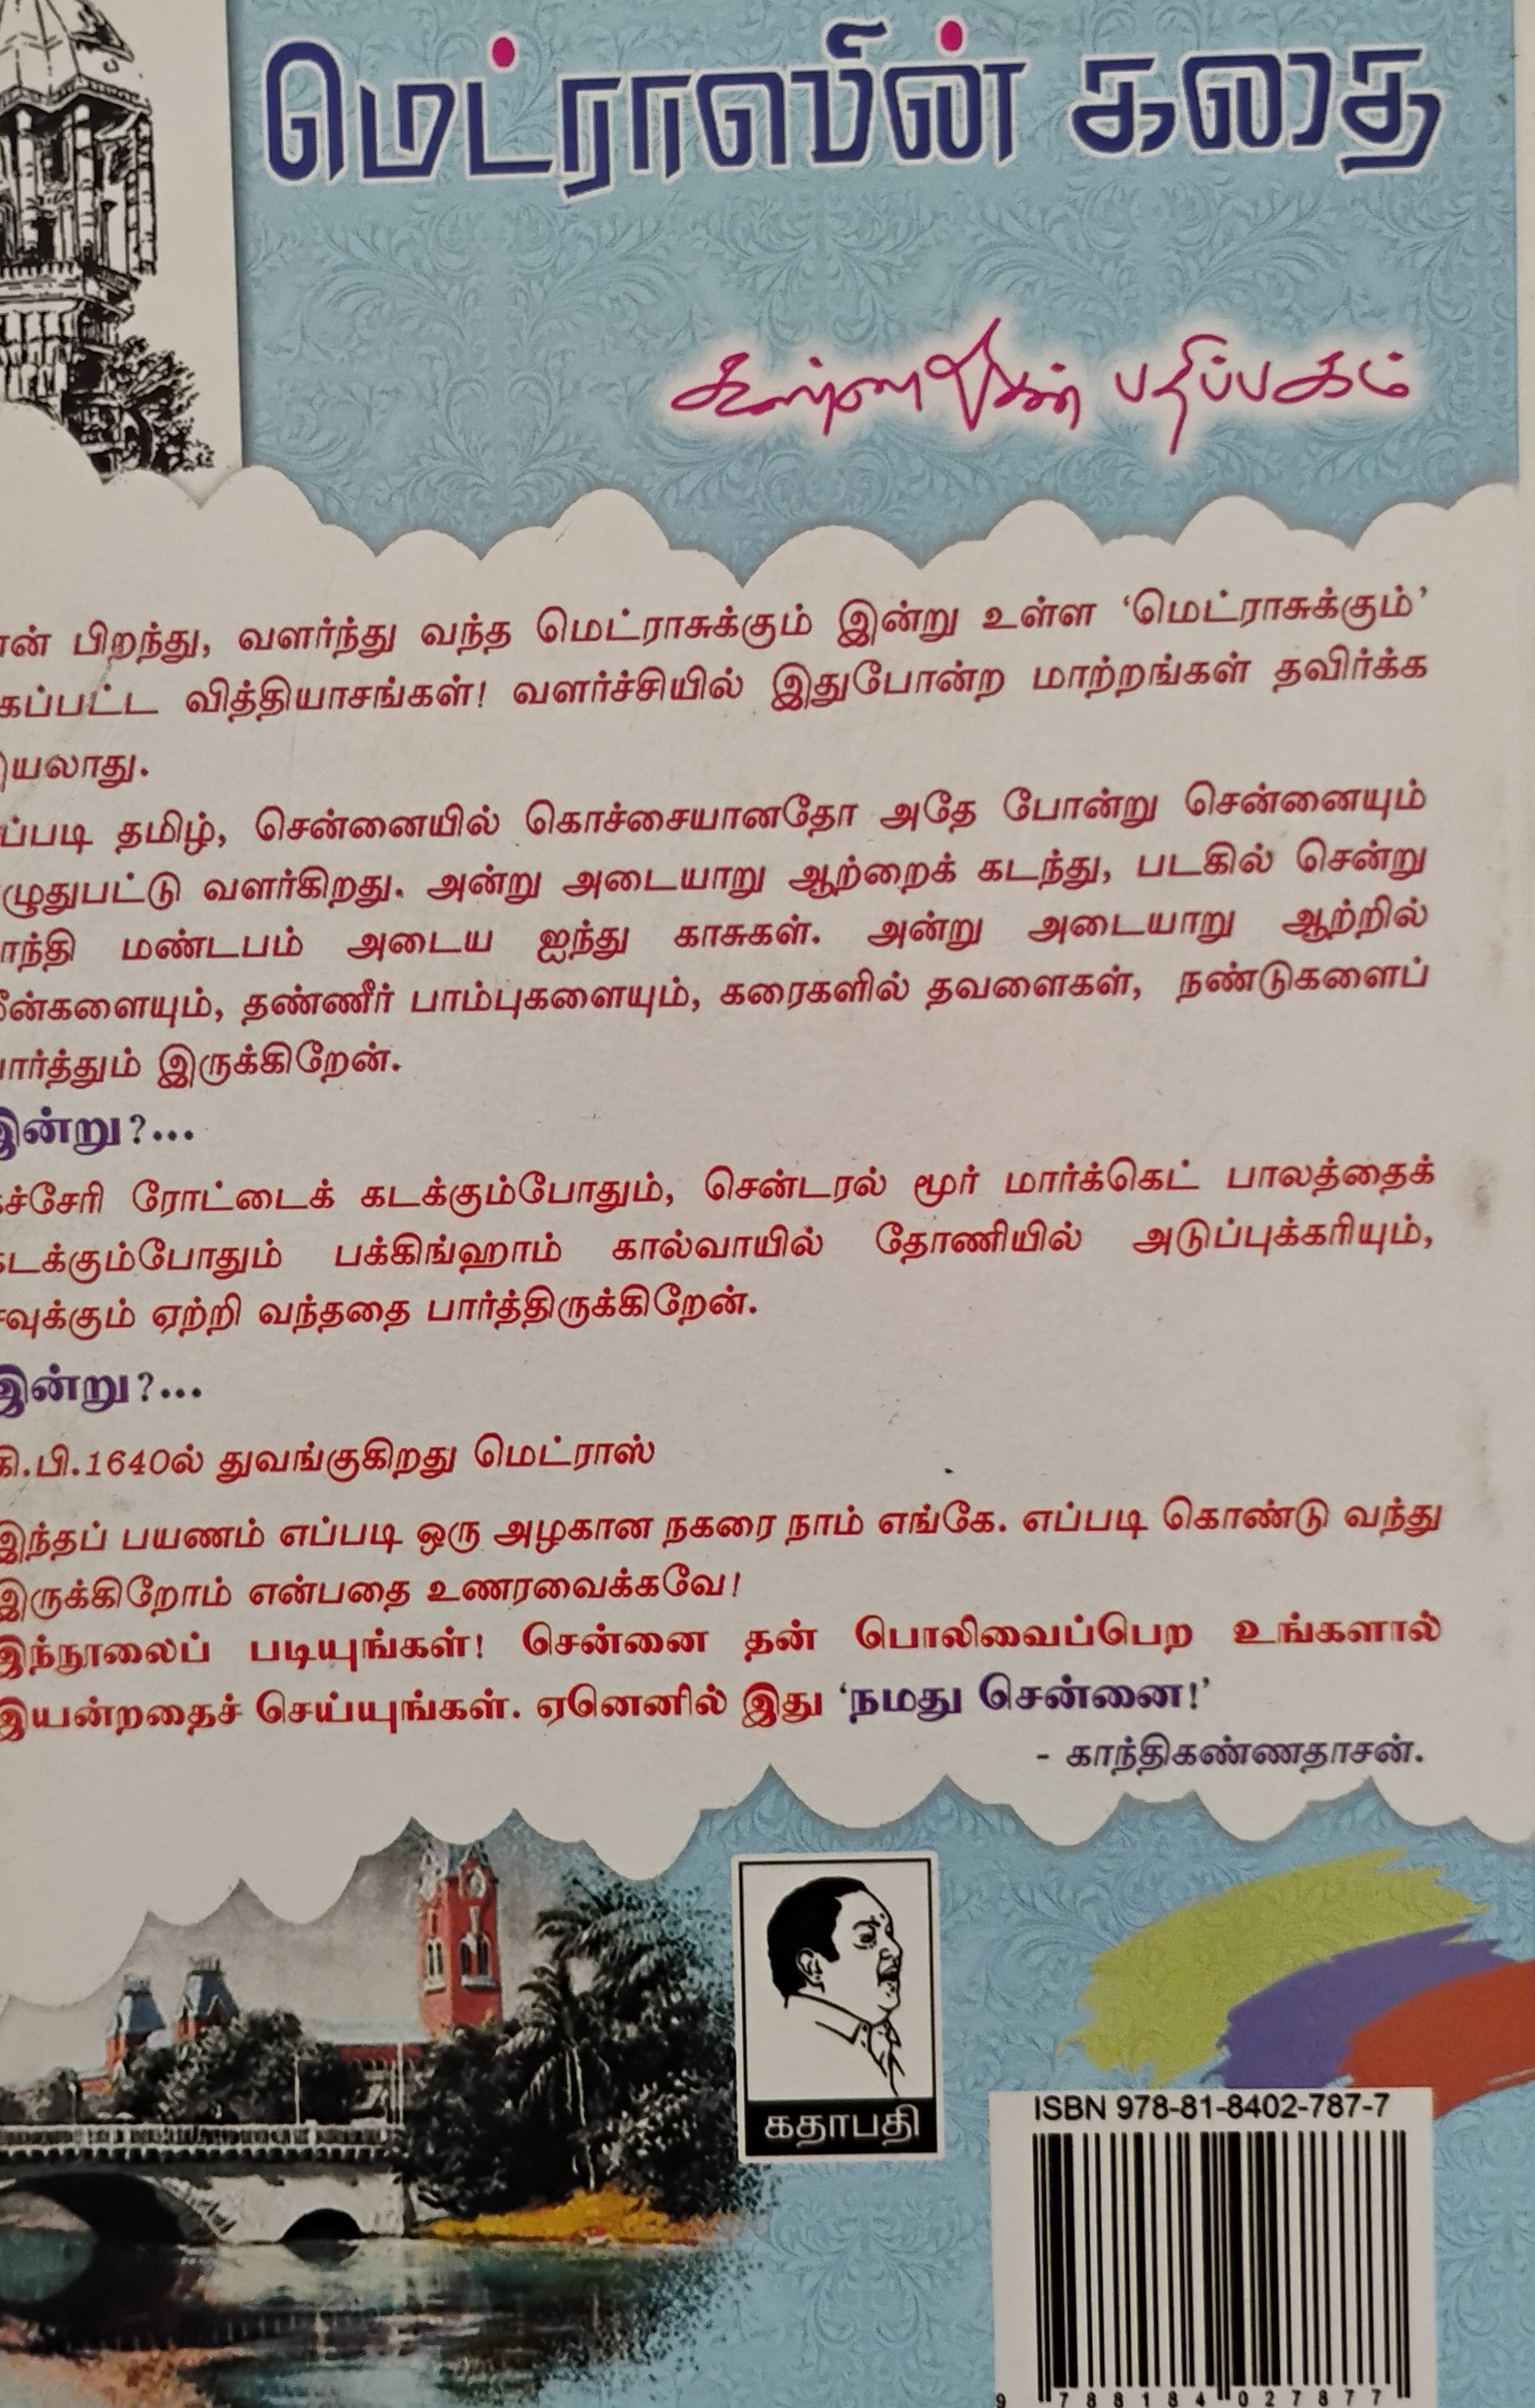 மெட்ராஸின் கதை
கண்ணதாசன் பதிப்பகம்
பிறந்து, வளர்ந்து வந்த மெட்ராசுக்கும் இன்று உள்ள ‘மெட்ராசுக்கும்’
வித்தியாசங்கள்! வளர்ச்சியில் இதுபோன்ற மாற்றங்கள் தவிர்க்க
இயலாது.
தமிழ், சென்னையில் கொச்சையானதோ அதே போன்று சென்னையும்
வளர்கிறது. அன்று அடையாறு ஆற்றைக் கடந்து, படகில் சென்று
மண்டபம் அடைய ஐந்து காசுகள். அன்று அடையாறு ஆற்றில்
மீன்களையும், தண்ணீர் பாம்புகளையும், கரைகளில் தவளைகள், நண்டுகளைப்
பார்த்தும் இருக்கிறேன்.
இன்று?...
கச்சேரி ரோட்டைக் கடக்கும்போதும், சென்டரல் மூர் மார்க்கெட் பாலத்தைக்
கடக்கும்போதும் பக்கிங்ஹாம் கால்வாயில் தோணியில் அடுப்புக்கரியும்,
சவுக்கும் ஏற்றி வந்ததை பார்த்திருக்கிறேன்.
இன்று?...
கி.பி.1640ல் துவங்குகிறது மெட்ராஸ்
இந்தப் பயணம் எப்படி ஒரு அழகான நகரை நாம் எங்கே. எப்படி கொண்டு வந்து
இருக்கிறோம் என்பதை உணரவைக்கவே!
இந்நூலைப் படியுங்கள்! சென்னை தன் பொலிவைப்பெற உங்களால்
இயன்றதைச் செய்யுங்கள். ஏனெனில் இது ‘நமது சென்னை!’
- காந்திகண்ணதாசன்.
கதாபதி
ISBN 978-81-8402-787-7
9 788184 027877